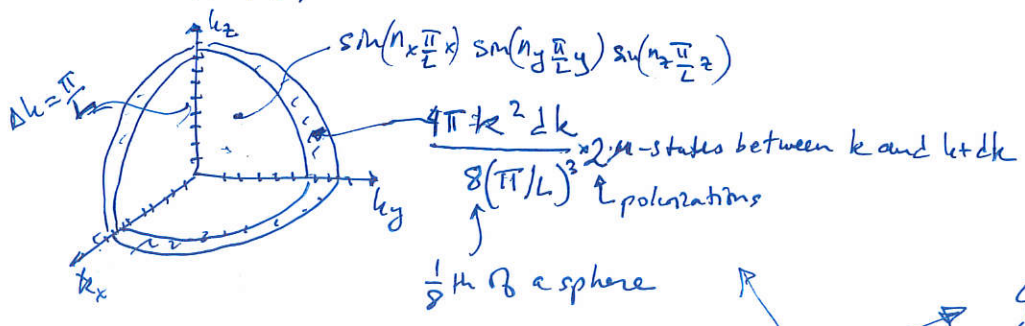 k_z
sin(n_x π/L x) sin(n_y π/L y) sin(n_z π/L z)
Δk = π/L
4π k² dk
8(π/L)³
× 2 -states between k and k+dk
polarizations
k_y
k_x
1/8 th of a sphere